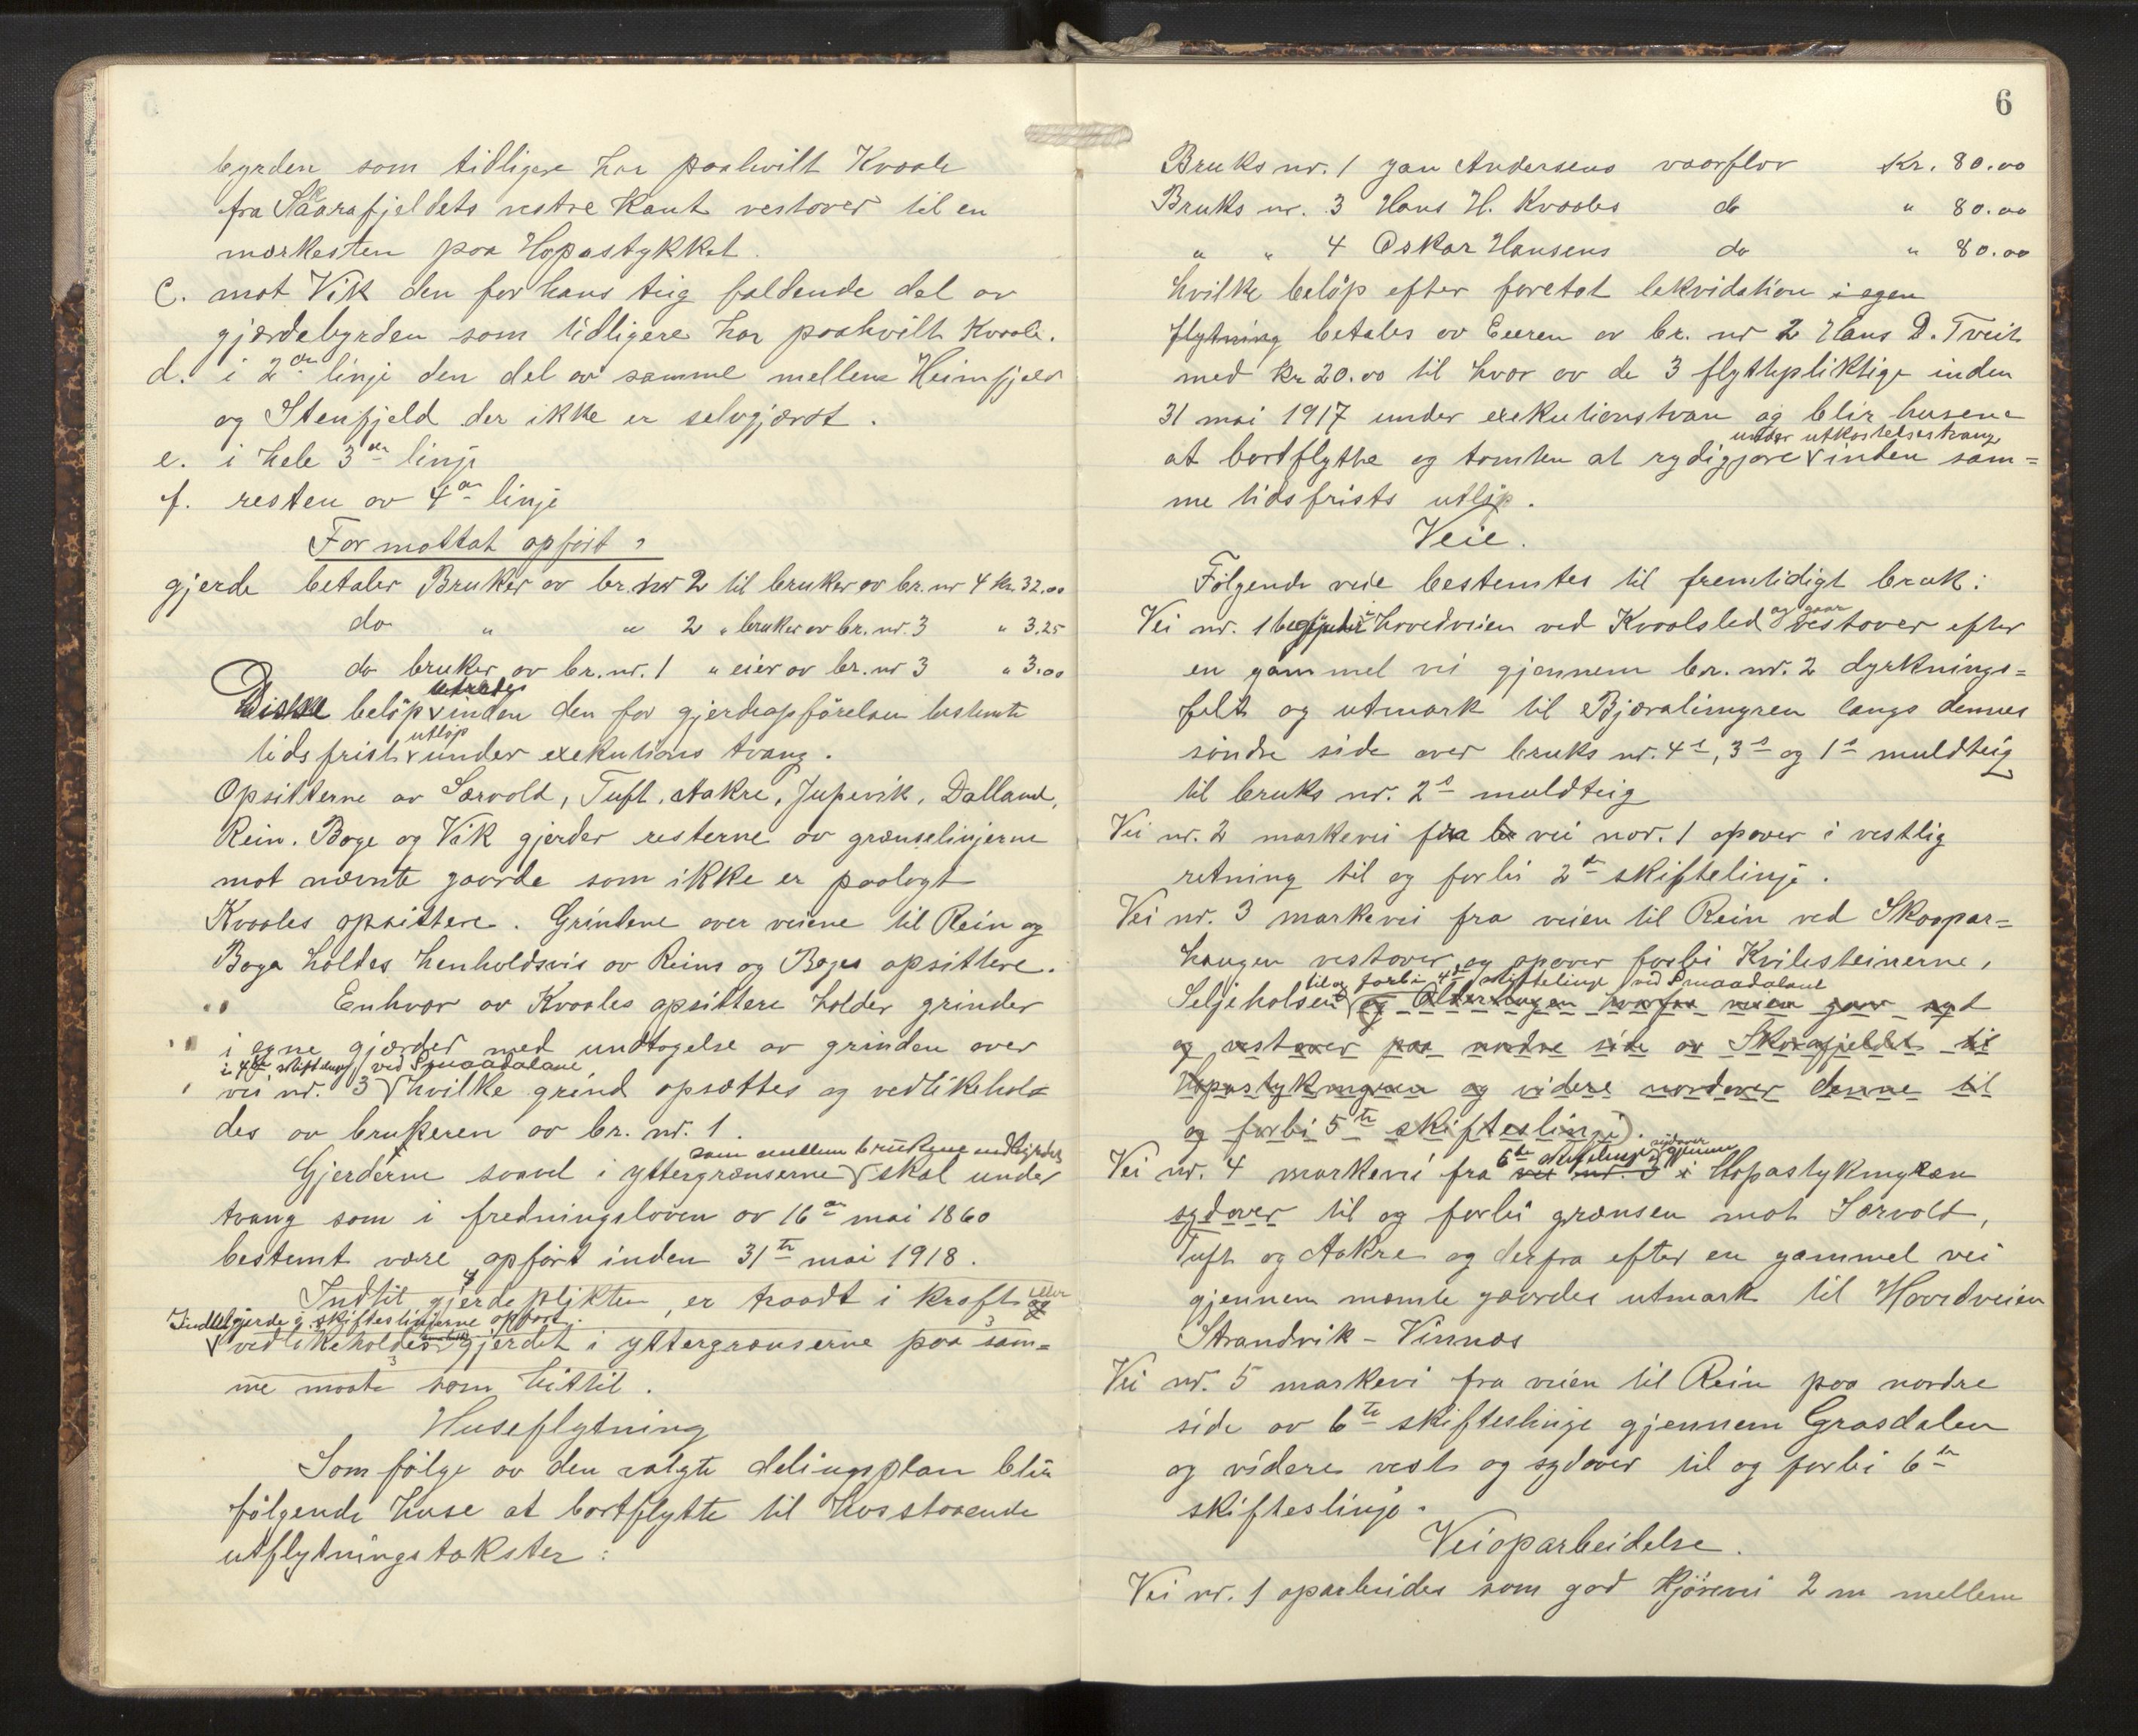 byrden som tidligere har paahvilt Kvaale
fra Skaarafjeldets vestre kant vestover til en
merkesten paa Hopastykket.
c. mot Vik den for hans teig faldende del av
gjærdebyrden som tidligere har paahvilt Kvaale.
d. i 2den linje den del av samme mellem Heimfjeld
og Stenfjeld der ikke er selvgjærdt.
e. i hele 3die linje
f. resten av 4de linje
For mottat opført
gjerde betaler Bruker av br. nr 2 til bruker av br. nr 4 Kr. 32.00
do " " 2 " bruker av br. nr. 3 " 3.25
do bruker av br. nr. 1 " eier av br. nr 3 " 3.00
Disse beløp betales inden den for gjerdeopførelsen bestemte
tidsfrists utløp under exekutions tvang.
Opsitterne av Særvold, Tuft, Aakre, Jupevik, Dalland,
Rein, Boge og Vik gjerder resterne av grænselinjerne
mot nævnte gaarde som ikke er paalagt
Kvaales opsittere. Grindene over veiene til Rein og
Boga holdes henholdsvis av Reins og Boges opsittere.
Enhver av Kvaales opsittere holder grinder
i egne gjærder med undtagelse av grinden over
i 4de skiftelinje ved Smaadalane
vei nr. 3 hvilke grind opsættes og vedlikehol=
des av brukeren av br. nr. 1.
som mellem brukene
Gjerderne saavel i yttergrænserne skal under
tvang som i fredningsloven av 16de mai 1860
bestemt være opført inden 31te mai 1918.
Indtil gjerdeplikten er traadt i kraft eller
Indtil gjerde i skifteslinjerne opført.
vedlikeholdes gjerdet i yttergrænserne paa sam=
me maate som hittil.
Huseflytning
Som følge av den valgte delingsplan blir
følgende huse at bortflytte til hosstaaende
utflytningstakster:
6
Bruks nr. 1 Jan Andersens vaarflor Kr. 80.00
Bruks nr. 3 Hans H. Kvaales do " 80.00
" " 4 Oskar Hansens do " 80.00
hvilke beløp efter foretat lekvidation i egen
flytning betales av Eieren av br. nr 2 Hans D. Tveit
med kr 20.00 til hver av de 3 flyttepliktige inden
31 mai 1917 under exekutionstvan og blir husene
under utkastelsestvang
at bortflytte og tomten at rydiggjøre inden sam=
me tidsfrists utløp.
Veie.
Følgende veie bestemtes til fremtidigt bruk:
og gaar
Vei nr. 1 begynder i Hovedveien ved Kvaalsled vestover efter
en gammel vei gjennem br. nr. 2 dyrknings=
felt og utmark til Bjøralimyren langs dennes
søndre side over bruks nr. 4s, 3s og 1s muldteig
til bruks nr. 2s muldteig
Vei nr. 2 markevei fra br vei nr. 1 opover i vestlig
retning til og forbi 2de skiftelinje.
Vei nr. 3 markevei fra veien til Rein ved Skaapar=
haugen vestover og opover forbi Kvilesteinerne,
til og forbi 4de skiftelinje ved Smaadalane
Seljeholsen og hvorfra veien gaar syd
og vestover paa nordre side av Skorafjeldet til
Hopastykmyren og videre nordover denne til
og forbi 5te skifteslinje).
6te skiftelinje sydover gjennem
Vei nr. 4 markevei fra vei nr. 3 i Hopastykmyren
sydover til og forbi grænsen mot Særvold,
Tuft og Aakre og derfra efter en gammel vei
gjennem nævnte gaardes utmark til Hovedveien
Strandvik - Vinnes
Vei nr. 5 markevei fra veien til Rein paa nordre
side av 6te skifteslinje gjennem Grasdalen
og videre vest og sydover til og forbi 6te
skifteslinje.
Veioparbeidelse.
Vei nr. 1 oparbeides som god kjørevei 2 m mellem